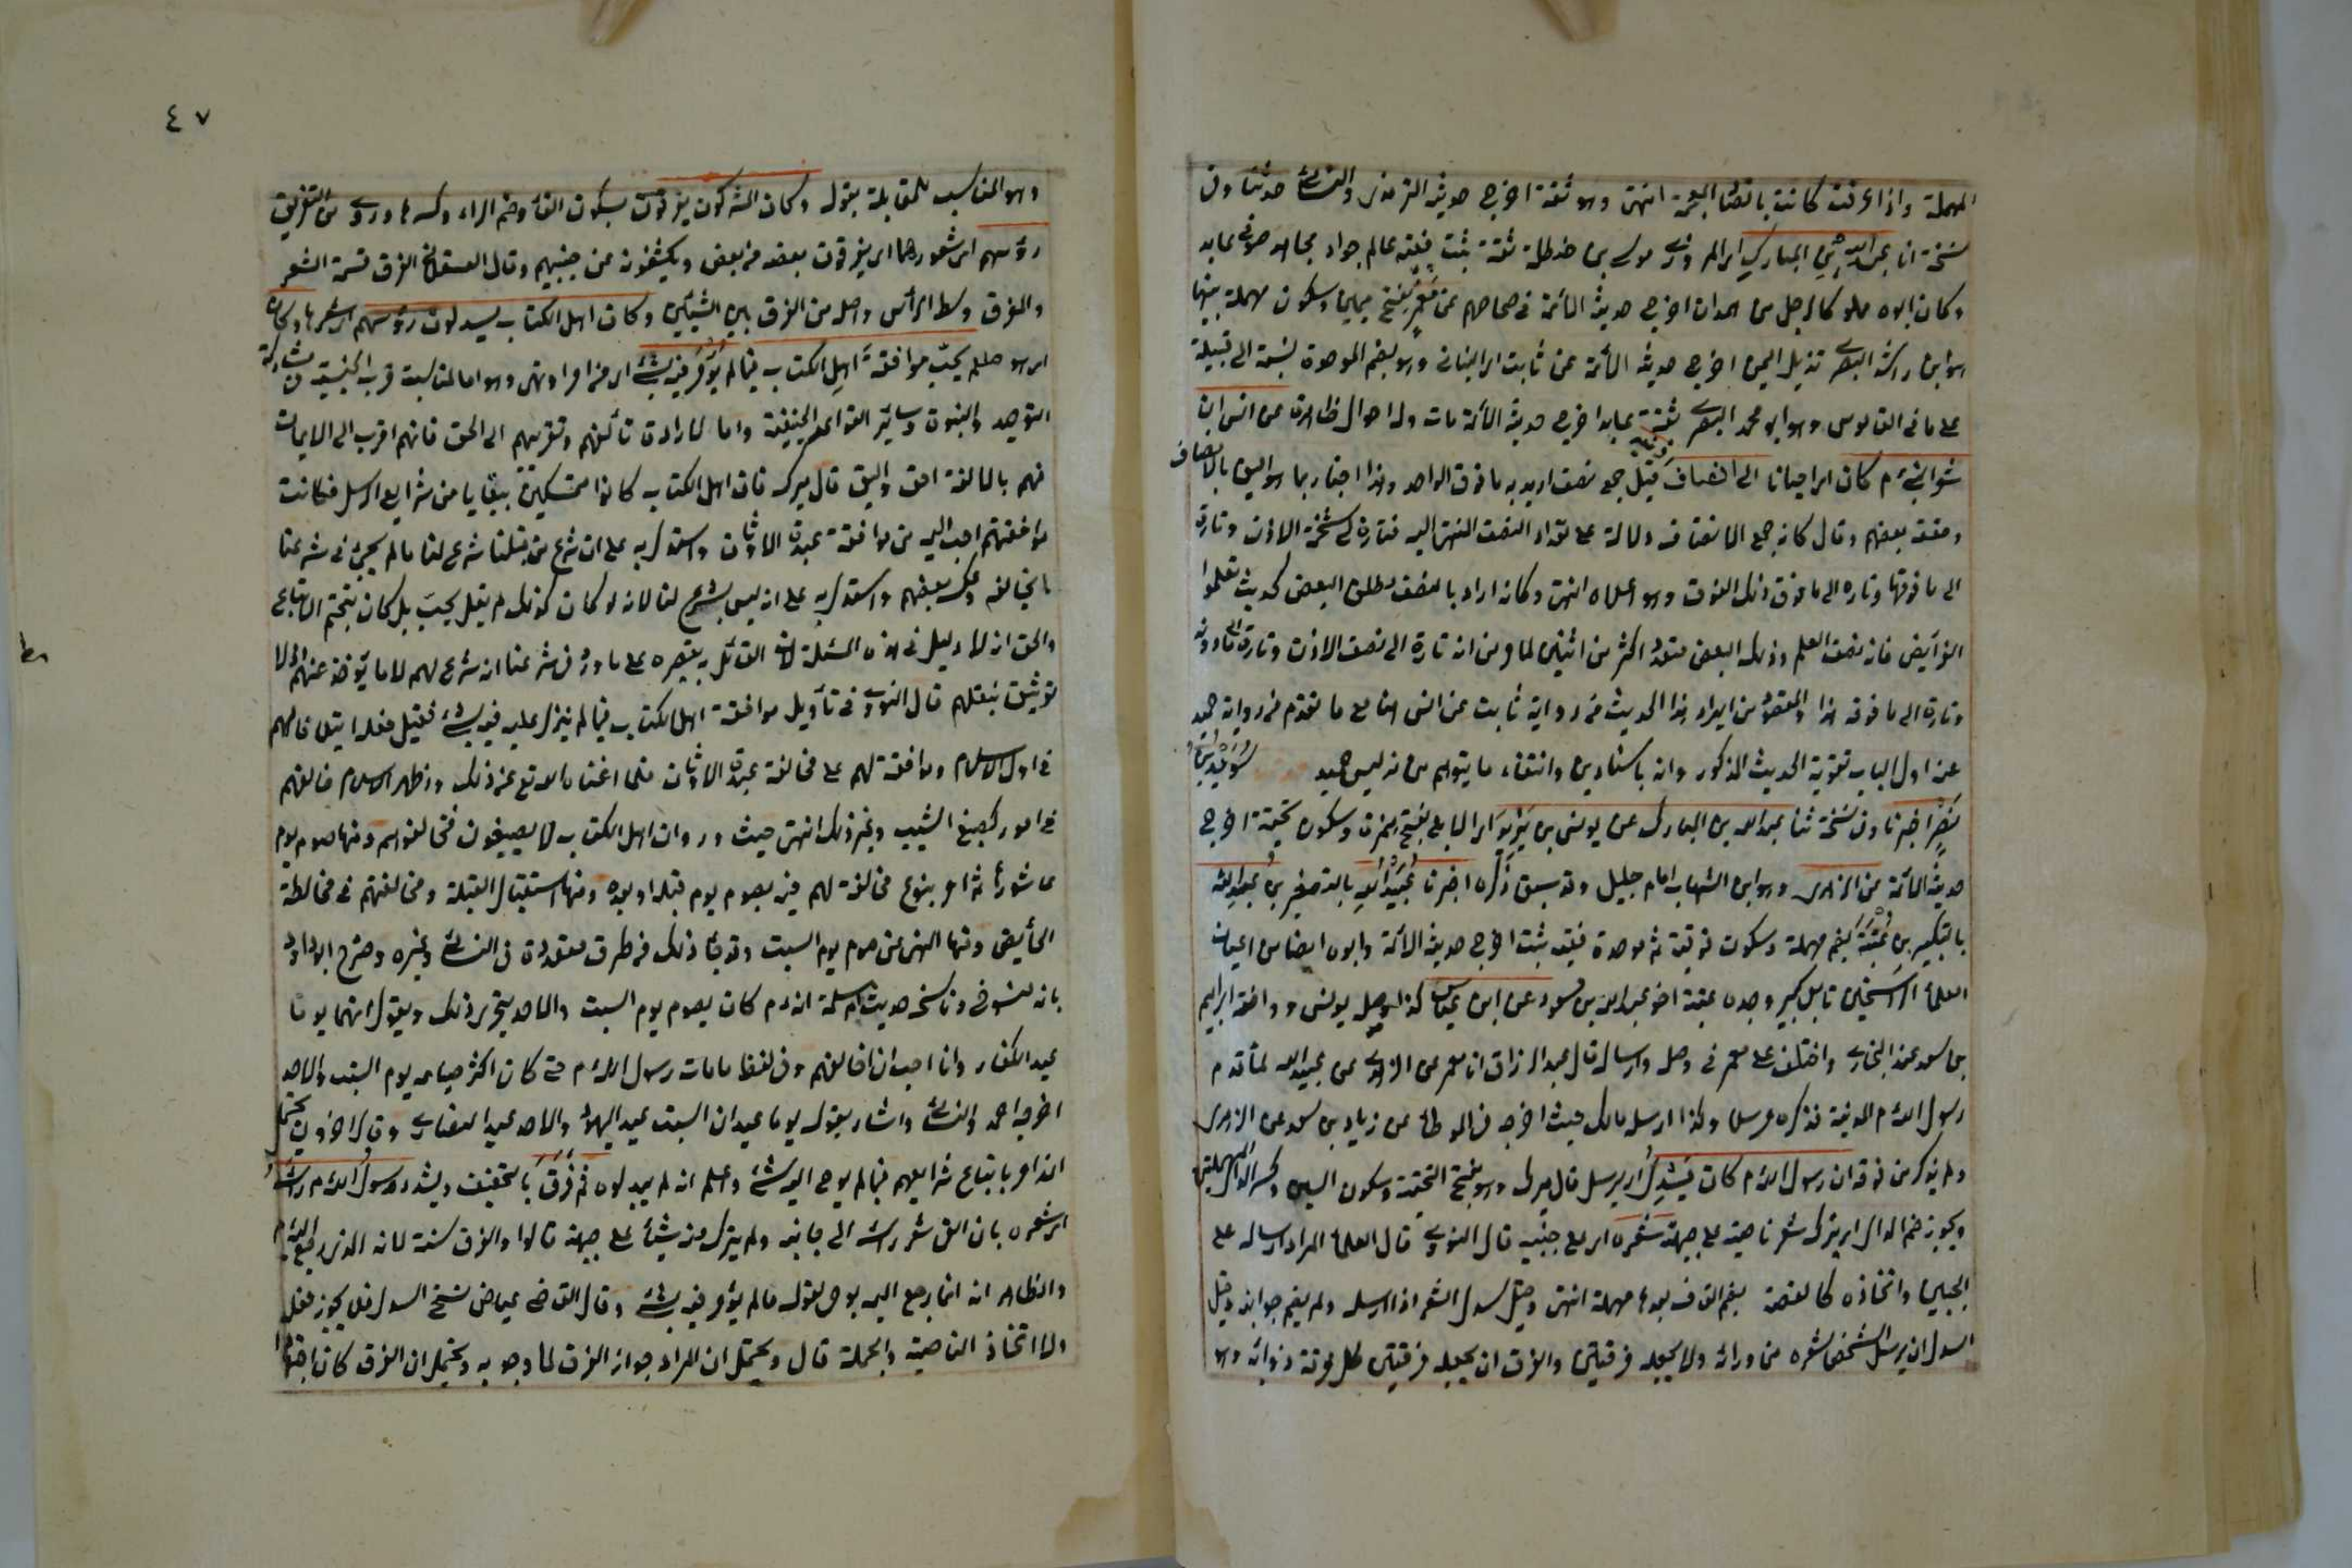 المهملة واذا عرفت كانت بالضاد المعجمة انتهى وهو ثقة اخرج حديثه الترمذي والنسائي حدثنا وفي
نسخة انا عبد الله بن المبارك اي المروزي مولى بني حنظلة ثقة ثبت فقيه عالم جواد مجاهد صوفي عابد
وكان ابوه مملوكا لرجل من همدان اخرج حديثه الائمة في صحاحهم عن معمر بفتح ميمين وسكون مهملة بينهما
هو ابن راشد البصري نزيل اليمن اخرج حديثه الائمة عن ثابت اي البناني وهو بضم الموحدة نسبة الى قبيلة
على ما في القاموس وهو ابو محمد البصري ثقة عابد اخرج حديثه الائمة مات وله احوال ظاهرة عن انس ان
شعر النبي م كان اي احيانا الى انصاف اذنيه قيل جمع نصف اريد به ما فوق الواحد وهذا اخبار بما هو اليق بالانصاف
وتعقبه بعضهم وقال كانه جمع الانصاف دلالة على تعدد النصف المنتهى اليه فتارة كان الى شحمة الاذن وتارة
الى ما فوقها وتارة الى ما فوق ذلك الفوق وهو اعلاه انتهى وكانه اراد بالنصف مطلق البعض كحديث تعلموا
الفرائض فانه نصف العلم وذلك البعض متعدد اكثر من اثنين لما مر من انه تارة الى نصف الاذن وتارة الى ما دونه
وتارة الى ما فوقه هذا والمقصود من ايراد هذا الحديث من رواية ثابت عن انس هنا مع ما تقدم من رواية حميد
عنه اول الباب تقوية الحديث المذكور وانه باسنادين وانتفاء ما يتوهم من تدليس حميد سويد بن
نصر اخبرنا وفي نسخة ثنا عبد الله بن المبارك عن يونس بن يزيد اي الايلي بفتح همزة وسكون تحتية اخرج
حديثه الائمة عن الزهري وهو ابن الشهاب امام جليل وقد سبق ذكره اخبرنا عبيد الله بالتصغير بن عبد الله
بالتكبير بن عتبة بضم مهملة وسكون فوقية ثم موحدة فقيه ثبت اخرج حديثه الائمة وابوه ايضا من اعيان
العلماء الراسخين تابعي كبير وجده عتبة اخو عبد الله بن مسعود عن ابن عباس كذا وصله يونس ووافقه ابراهيم
بن سعد عند البخاري واختلف على معمر في وصله وارساله قال عبد الرزاق انا معمر عن الزهري عن عبيد الله لما قدم
رسول الله م المدينة فذكره مرسلا وكذا ارسله مالك حيث اخرجه في الموطأ عن زياد بن سعد عن الزهري
ولم يذكر من فوقه ان رسول الله م كان يسدل اي يرسل قال ميرك وهو بفتح التحتية وسكون السين وكسر الدال المهملتين
ويجوز ضم الدال اي يترك شعر ناصيته على جبهته شعره اي على جنبيه قال النووي قال العلماء المراد ارساله على
الجبين واتخاذه كالقصة بضم القاف بعدها مهملة انتهى وقيل سدل الشعر اذا ارسله ولم يضم جوانبه وقيل
السدل ان يرسل الشخص شعره من ورائه ولا يجعله فرقتين والفرق ان يجعله فرقتين كل فرقة ذؤابة وهو
٤٧
وهو المناسب للمقابلة بقوله وكان المشركون يفرقون بسكون الفاء وضم الراء وكسرها وروي من التفريق
رؤسهم اي شعورها اي يفرقون بعضه من بعض ويكشفونه عن جبينهم وقال العسقلاني الفرق قسمة الشعر
والمفرق وسط الرأس واصله من الفرق بين الشيئين وكان اهل الكتاب يسدلون رؤسهم اي شعرها وكان
اي هو صلعم يحب موافقة اهل الكتاب فيما لم يؤمر فيه بشئ اي من امر او نهي وهو اما لمناسبة قرب الجنسية من مشاركة
التوحيد والنبوة وسائر القواعد الحنيفية واما لارادة تألفهم وتقريبهم الى الحق فانهم اقرب الى الايمان
فهم بالمالفة احق واليق قال ميرك فان اهل الكتاب كانوا متمسكين ببقايا من شرايع الرسل فكانت
موافقتهم احب اليه من موافقة عبدة الاوثان واستدل به على ان شرع من قبلنا شرع لنا ما لم يجئ في شرعنا
ما يخالفه وعكس بعضهم واستدل به على انه ليس بشرع لنا لانه لو كان كذلك لم يقل يحب بل كان يتحتم الاتباع
والحق ان لا دليل في هذه المسئلة لان القائل به يقصره على ما ورد في شرعنا انه شرع لهم لا ما يؤخذ عنهم اذ لا
توثيق بنقلهم قال النووي في تأويل موافقة اهل الكتاب فيما لم ينزل عليه فيه بشئ فقيل فعله ايتلافا لهم
في اول الاسلام وموافقة لهم على مخالفة عبدة الاوثان فلما اغناه الله تع عن ذلك وظهر الاسلام خالفهم
في امور كصبغ الشيب وغير ذلك انتهى حيث ورد ان اهل الكتاب لا يصبغون فخالفوهم ومنها صوم يوم
عاشوراء ثم امر بنوع مخالفة لهم فيه بصوم يوم قبله او بعده ومنها استقبال القبلة ومخالفتهم في مخالطة
الحائض ومنها النهي عن صوم يوم السبت وقد جاء ذلك من طرق متعددة في النسائي وغيره وصرح ابو داود
بانه منسوخ وناسخه حديث ام سلمة انه م كان يصوم يوم السبت والاحد يتحرى ذلك ويقول انهما يوما
عيد الكفار وانا احب ان اخالفهم وفي لفظ ما مات رسول الله م حتى كان اكثر صيامه يوم السبت والاحد
اخرجه احمد والنسائي واشار بقوله يوما عيد ان السبت عيد اليهود والاحد عيد النصارى وقال اخرون يحتمل
انه امر باتباع شرايعهم فيما لم يوحى اليه بشئ واعلم انه لم يبدلوه ثم فرق بالتخفيف ويشدد رسول الله م رأسه
اي شعره بان القى شعر رأسه الى جانبيه ولم يترك منه شيئا على جبهته قالوا والفرق سنة لانه الذي رجع اليه م
والظاهر انه انما رجع اليه بوحي لقوله ما لم يؤمر فيه بشئ وقال القاضي عياض نسخ السدل فلا يجوز فعله
ولا اتخاذ الناصية والجملة قال ويحتمل ان المراد جواز الفرق لا وجوبه ويحتمل ان الفرق كان اجتهادا